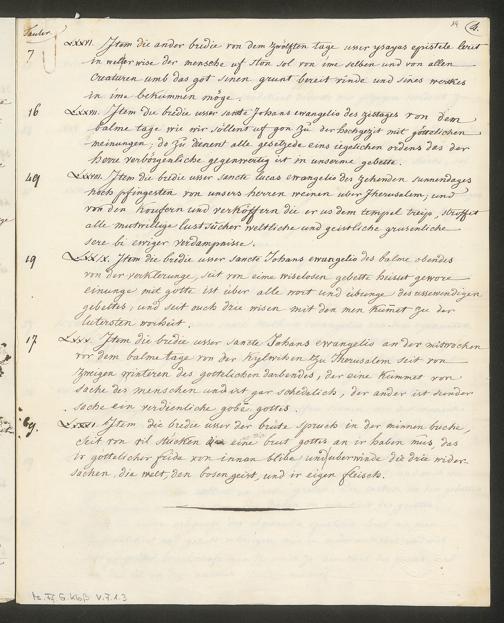 Tauler
14 4.
7 LXXVI. Jtem die ander bredie von dem zwölften tage usser ysayas epistele lerit
in weller wise der mensche uf ston sol von ime selben und von allen
Creaturen umb das got sinen grunt bereit vinde und sines werckes
in ime bekummen möge.
16 LXXVII. Jtem die bredie usser sancte Johans ewangelio des zistages von dem
balme tage wie wir söllent uf gon zu der hochgezit mit göttelichen
meinungen; do zu dienent alle gesetzede eins iegelichen ordens das der
herre verborgenliche gegenwertig ist in unserme gebette.
49 LXXVIII. Jtem die bredie usser sancte Lucas ewangelio des zehenden sunnendages
noch pfingesten von unsers herren weinen uber Jherusalem; und
von den Koufern und verköffern die er us dem tempel treip, stroffet
alle mutwillige lustsücher weltliche und geistliche grusenliche
sere bi ewiger verdampnisse.
19 LXXIX. Jtem die bredie usser sancte Johans ewangelio des balme obendes
von der verklerunge, seit von eime wiselosen gebette heisset gewore
einunge mit gotte ist über alle wort und übunge des usswendigen
gebettes, und seit ouch drie wisen mit den men kumet zu der
lutersten worheit.
17 LXXX. Jtem die bredie usser sancte Johans ewangelio an der mitwochen
vor dem balme tage von der Kylwihen tzu Jherusalem seit von
zweigen winteren des gottelichen darbendes, der eine kummet von
sache des menschen und ist gar schedelich, der ander ist sunder
sache ein verdienliche gobe gottes.
69. LXXXI. Jtem die bredie usser der brute spruch in der minnen buche,
seit von vil stucken die eine brut gottes an ir haben mus, das
ir gottelicher fride von innan blibe und überwinde die drie wider-
sachen, die welt, den bosen geist, und ir eigen fleisch.
V.7.1.3